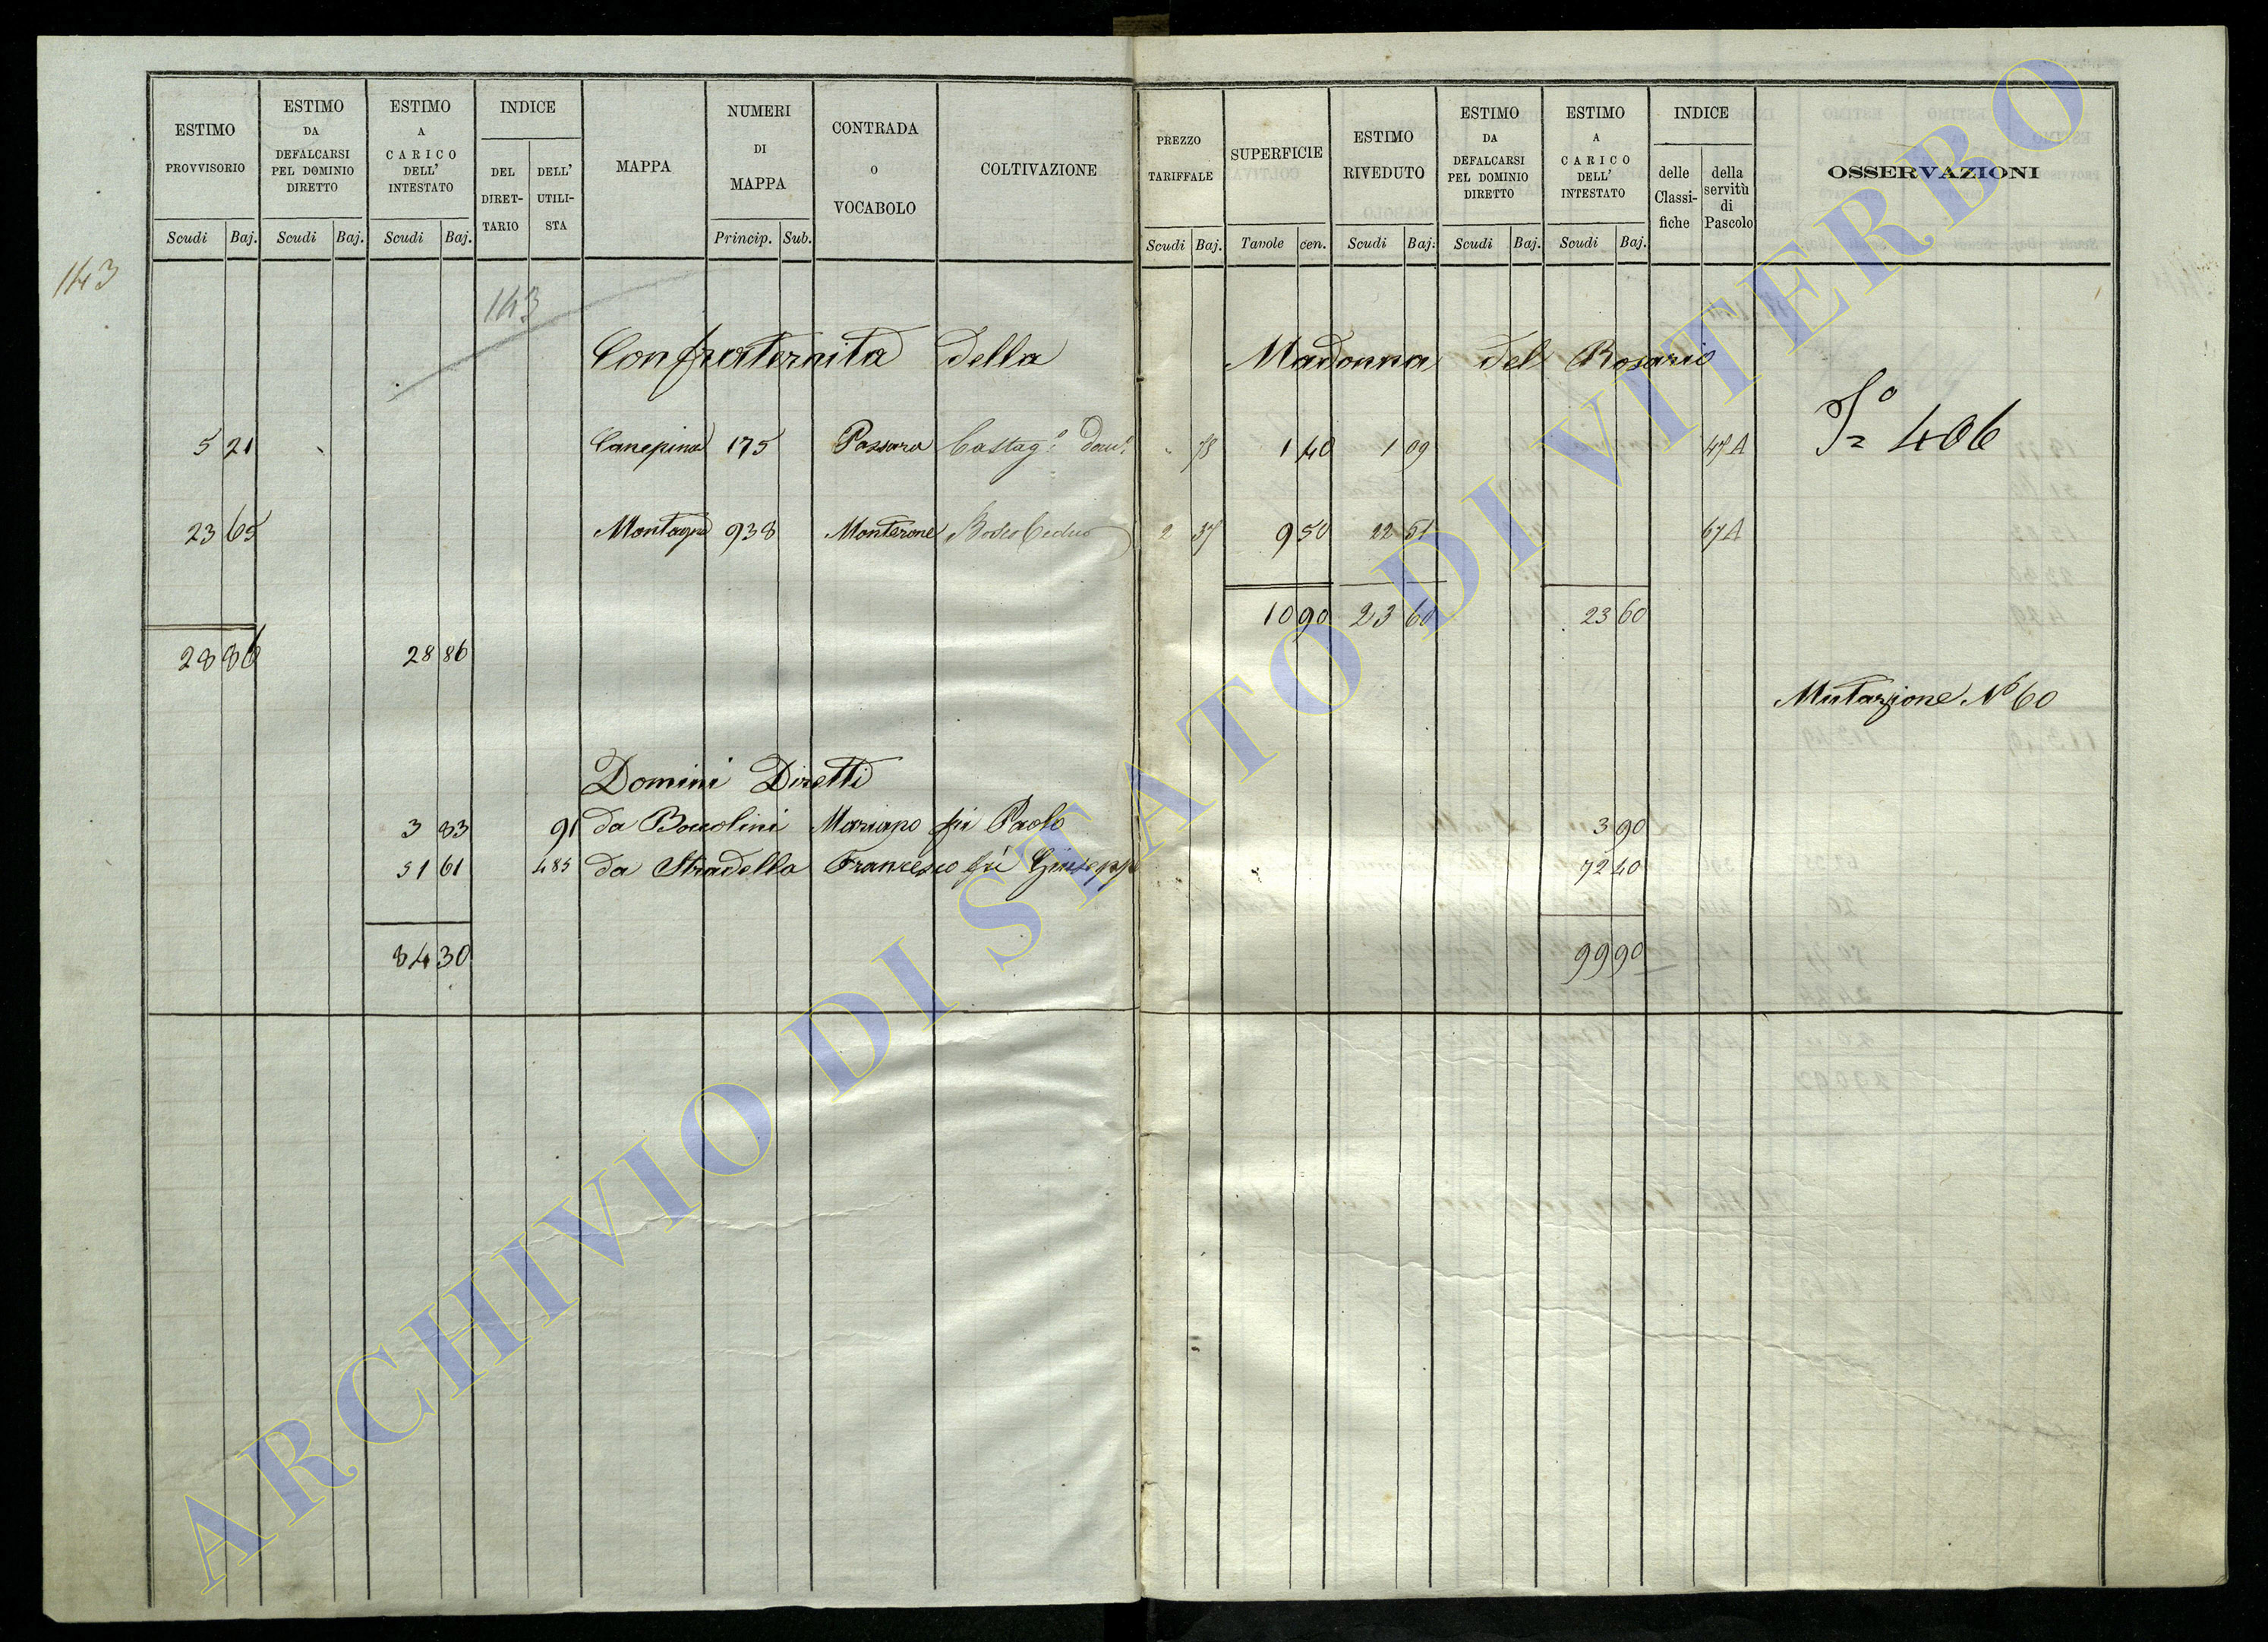 ESTIMO PROVVISORIO
ESTIMO DA DEFALCARSI PEL DOMINIO DIRETTO
ESTIMO A CARICO DELL' INTESTATO
INDICE
DEL DIRET-TARIO
DELL' UTILI-STA
MAPPA
NUMERI DI MAPPA
CONTRADA O VOCABOLO
COLTIVAZIONE
PREZZO TARIFFALE
SUPERFICIE
ESTIMO RIVEDUTO
ESTIMO DA DEFALCARSI PEL DOMINIO DIRETTO
ESTIMO A CARICO DELL' INTESTATO
INDICE
delle Classi-fiche
della servitù di Pascolo
OSSERVAZIONI
Scudi Baj. Scudi Baj. Scudi Baj. Princip. Sub. Scudi Baj. Tavole cen. Scudi Baj. Scudi Baj. Scudi Baj.
143
143
Confraternita della Madonna del Rosario
5 21 Canepina 175 Castag.o 78 1 40 1 09 47 A
Fo 406
23 65 Montagna 938 Monterone Bosco Ceduo 2 37 9 50 22 51 67 A
10 90 23 60 23 60
28 86 28 86
Mutazione No 60
Domini Diretti
3 83 91 da Boccolini Mariano fu Paolo 3 90
51 61 485 da Stradella Francesco fu Giuseppe 72 40
84 30 99 90
ARCHIVIO DI STATO DI VITERBO